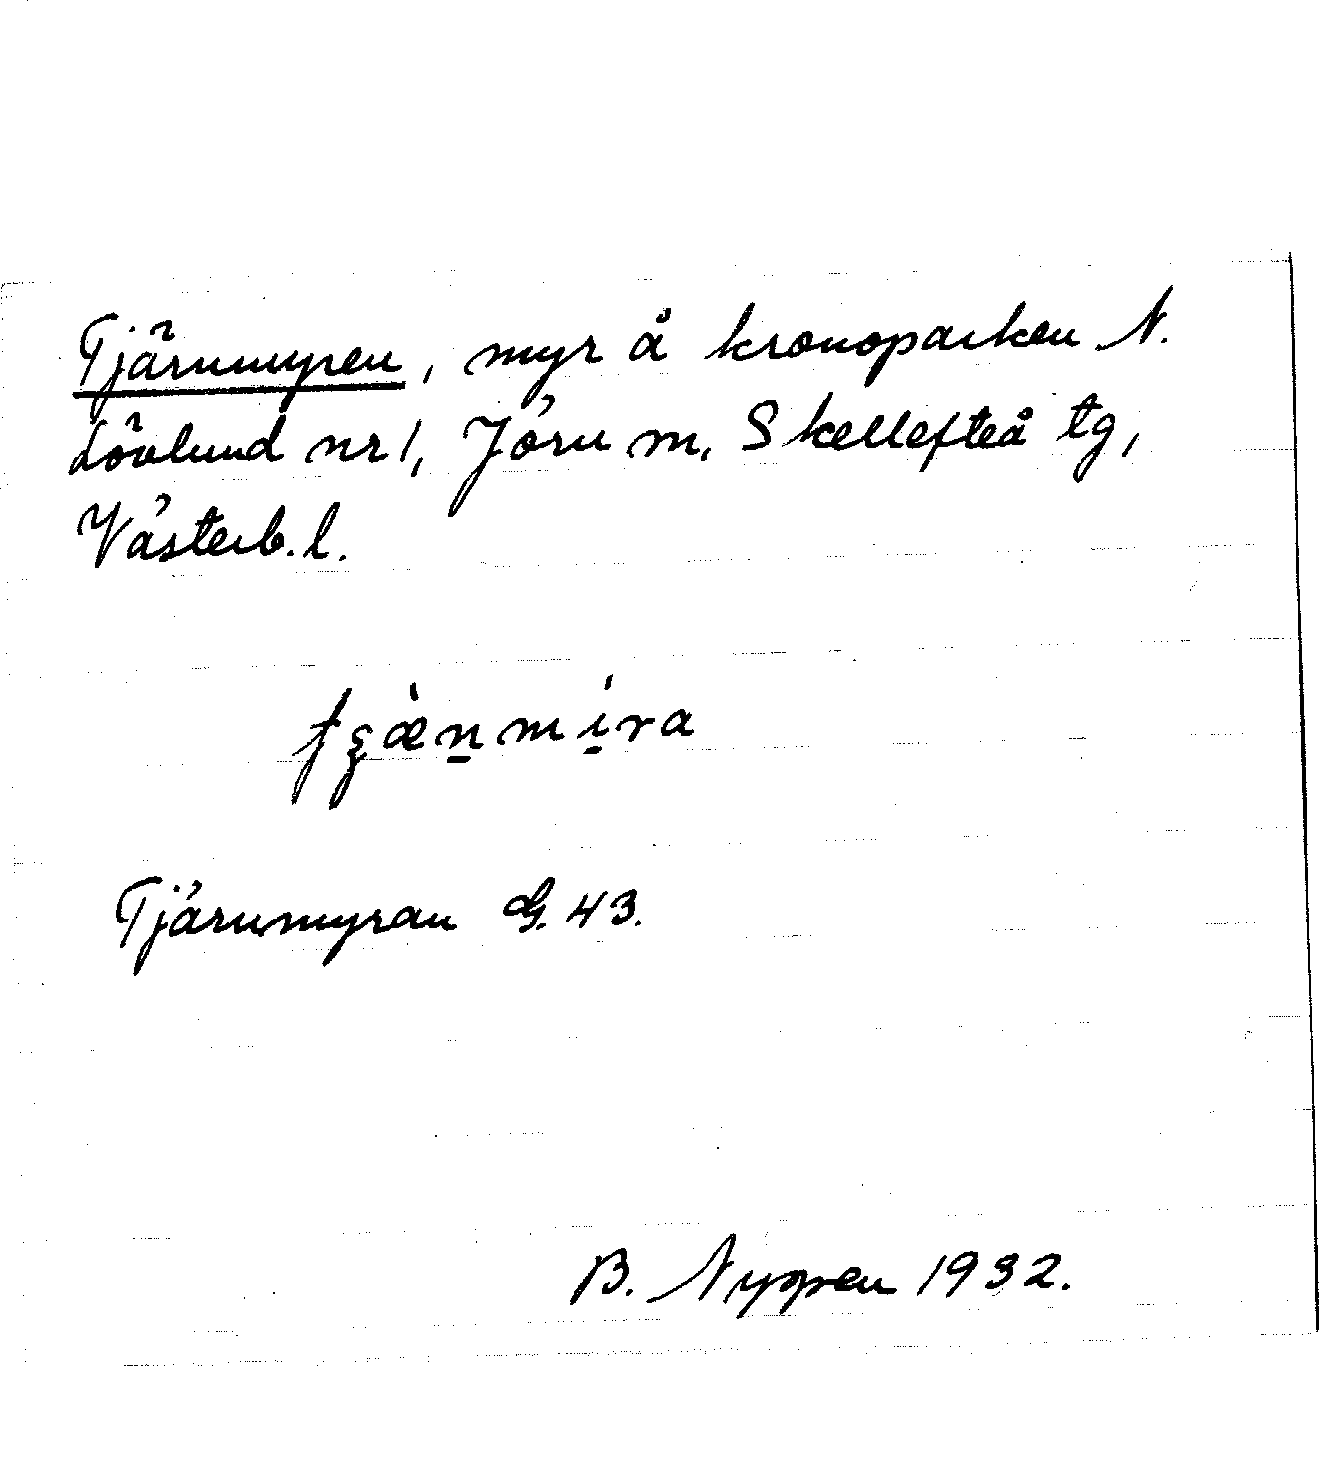 Tjärnmyren, myr å kronoparken N.
Lövlund nr 1, Jörn sn, Skellefteå tg,
Västerb. l.
Tjärnmyran G. 43.
B. Nyppen 1932.